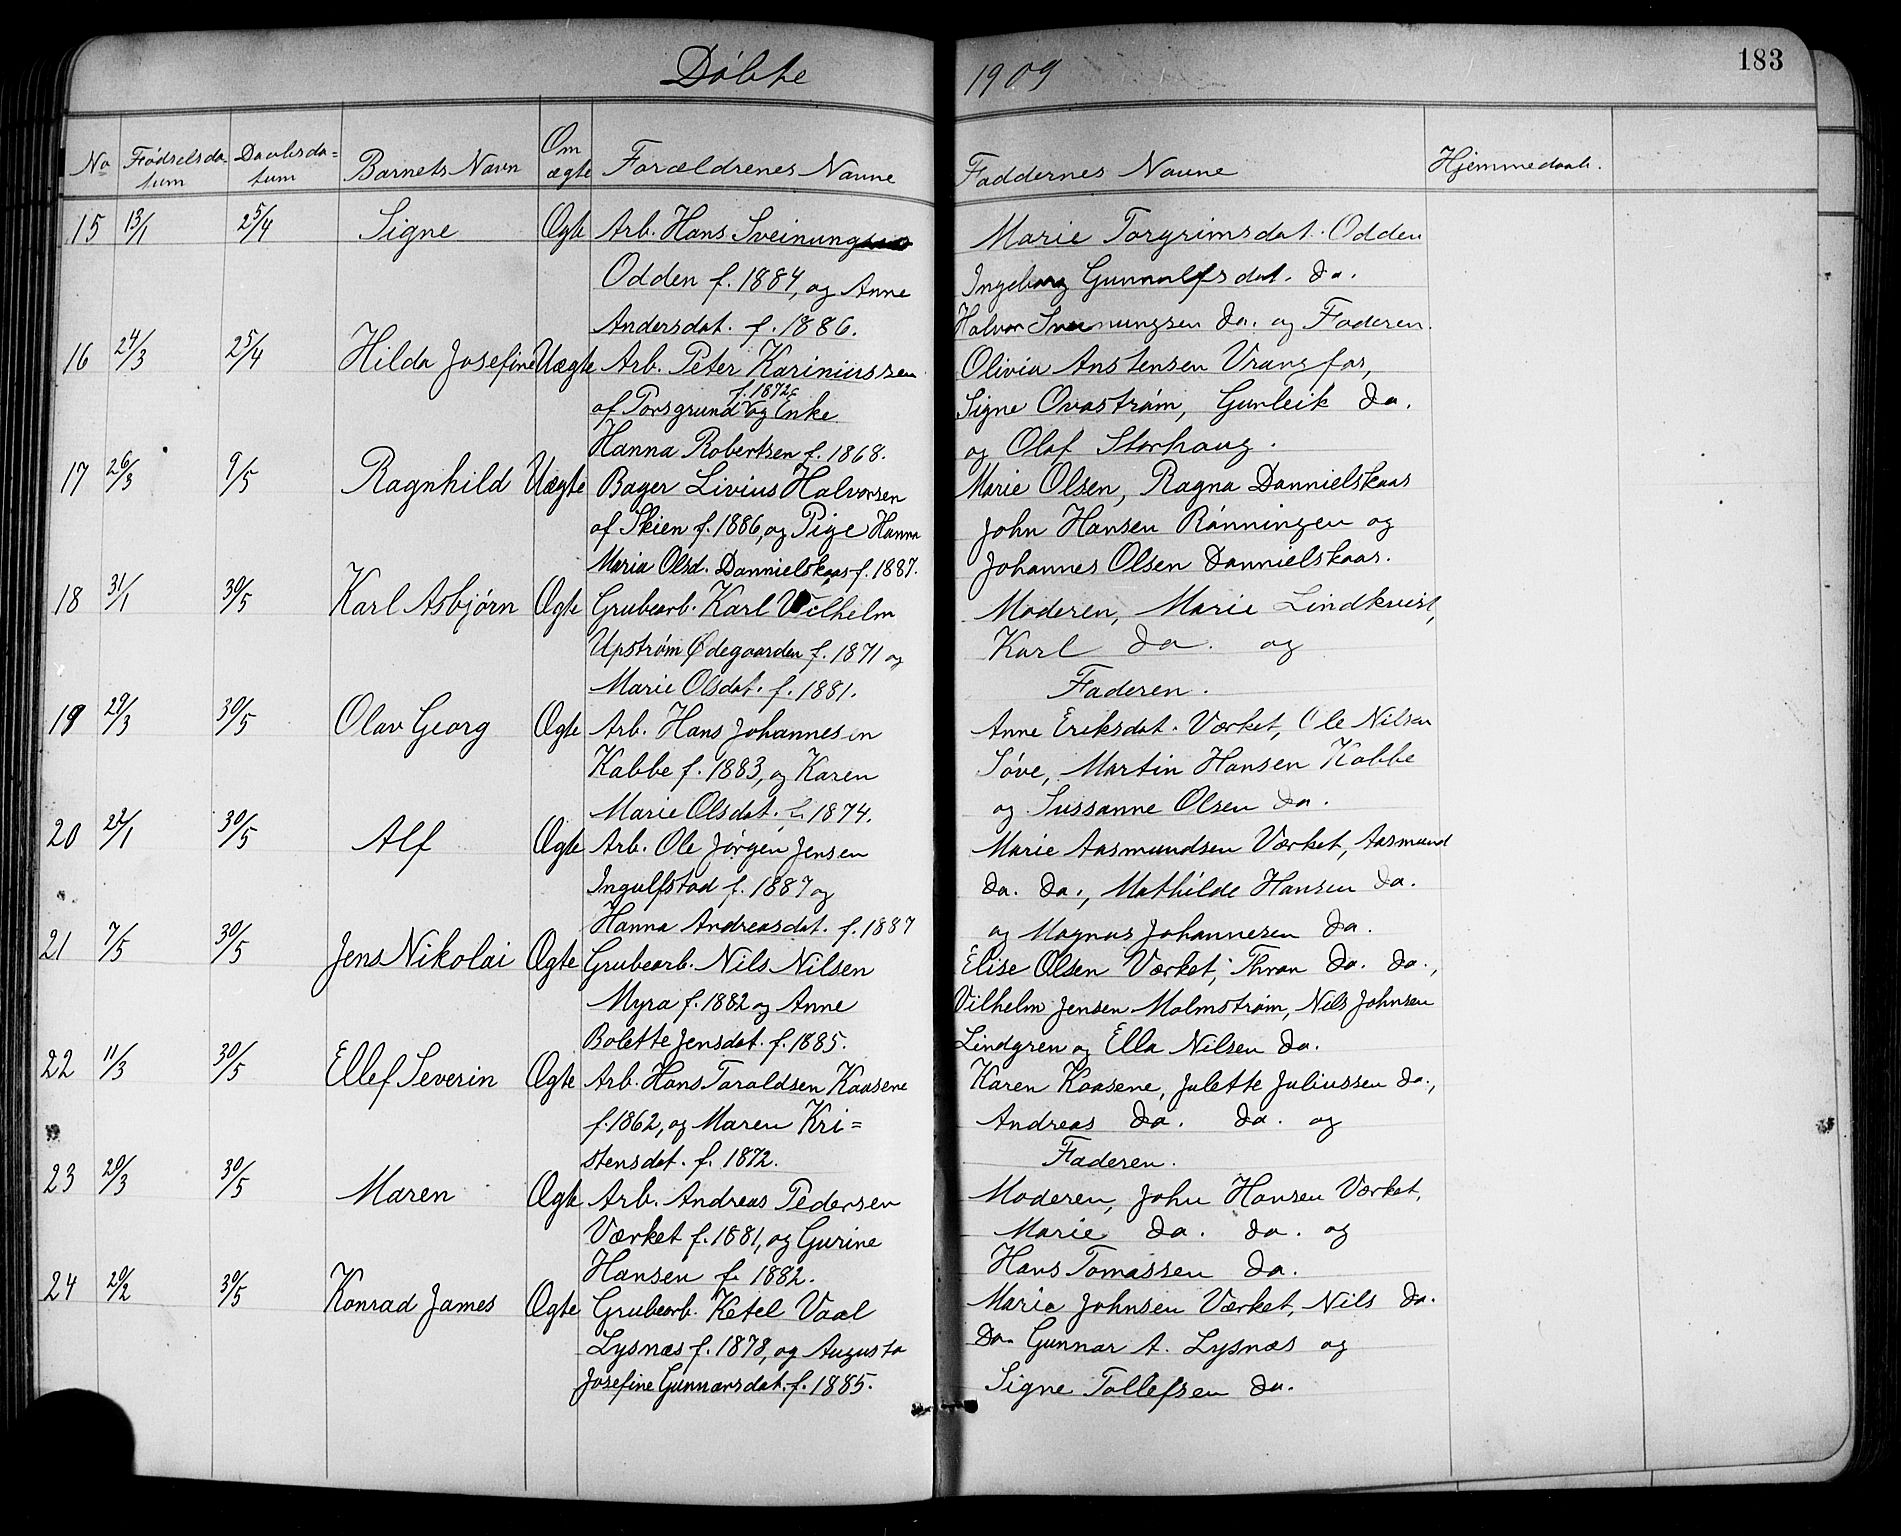 183
Døbte 1909
No Fødselsdatum Daabsdatum Barnets Navn Om ægte Forældrenes Navne Faddernes Navne Hjemmedaab.
15 13/1 25/4 Signe Ægte Arb. Hans Sveinungsen Marie Torgrimsdat. Odden
Odden f. 1884, og Anne Ingeborg Gunnulfsdat. do.
Andersdat. f. 1886. Halvor Sveinungsen do. og Faderen.
16 24/3 25/4 Hilda Josefine Uægte Arb. Peter Kariniussen Olivia Anstensen Vrangfos,
af Porsgrund f. 1872, og Enke Signe Ovastrøm, Gunleik do.
Hanna Robertsen f. 1868. og Olaf Storhaug.
17 26/3 9/5 Ragnhild Uægte Bager Livius Halvorsen Marie Olsen, Ragna Dannielskaas
af Skien f. 1886, og Pige Hanna John Hansen Rønningen og
Maria Olsd. Dannielskaas f. 1887. Johannes Olsen Dannielskaas.
18 31/1 30/5 Karl Asbjørn Ægte Grubearb. Karl Vilhelm Moderen, Marie Lindkvist,
Upstrøm Ødegaarden f. 1871 og Karl do. og
Marie Olsdat. f. 1881. Faderen.
19 29/3 30/5 Olav Georg Ægte Arb. Hans Johannesen Anne Eriksdat. Værket, Ole Nilsen
Kabbe f. 1883, og Karen Søve, Martin Hansen Kabbe
Marie Olsdat. f. 1874. og Sussanne Olsen do.
20 22/1 30/5 Alf Ægte Arb. Ole Jørgen Jensen Marie Aasmundsen Værket, Aasmund
Ingulfstad f. 1887 og do. do., Mathilde Hansen do.
Hanna Andreasdat. f. 1887 og Magnus Johannesen do.
21 7/5 30/5 Jens Nikolai Ægte Grubearb. Nils Nilsen Elise Olsen Værket, Thron do. do.,
Myra f. 1882 og Anne Vilhelm Jensen Malmstrøm, Nils Johnsen
Bolette Jensdat. f. 1885. Lindgren og Ella Nilsen do.
22 11/3 30/5 Ellef Severin Ægte Arb. Hans Taraldsen Kaasene Karen Kaasene, Julette Juliussen do.,
f. 1862, og Maren Kri= Andreas do. do. og
stensdat. f. 1872. Faderen.
23 20/3 30/5 Maren Ægte Arb. Andreas Pedersen Moderen, John Hansen Værket,
Værket f. 1881, og Gurine Marie do. do. og
Hansen f. 1882. Hans Tomassen do.
24 20/2 30/5 Konrad James Ægte Grubearb. Ketel Vaal Marie Johnsen Værket, Nils do.
Lysnæs f. 1878, og Augusta do. Gunnar A. Lysnæs og
Josefine Gunnarsdat. f. 1885. Signe Tollefsen do.